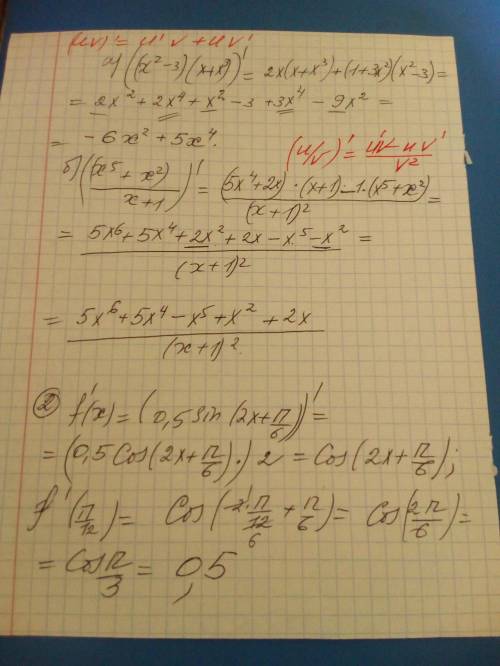 (uv)' = u'v + uv'
а) ((x² - 3)(x + x³))' = 2x(x + x³) + (1 + 3x²)(x² - 3) =
= 2x² + 2x⁴ + x² - 3 + 3x⁴ - 9x² =
= - 6x² + 5x⁴.
(u/v)' = (u'v - uv')/v²
б) ((x⁵ + x²)/(x + 1))' = ((5x⁴ + 2x)·(x + 1) - 1·(x⁵ + x²))/(x + 1)² =
= (5x⁶ + 5x⁴ + 2x² + 2x - x⁵ - x²)/(x + 1)² =
= (5x⁶ + 5x⁴ - x⁵ + x² + 2x)/(x + 1)².
② f'(x) = (0,5 sin(2x + π/6))' =
= (0,5 Cos(2x + π/6)·) 2 = Cos(2x + π/6);
f'(π/12) = Cos(2·π/12 + π/6) = Cos(2π/6) =
= Cos π/3 = 0,5